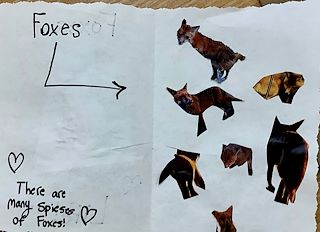 Foxes
There are
Many Spieses
of Foxes!